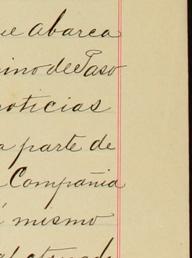 ue abarca
ino de Paso
noticias
a parte de
Compañia
mismo